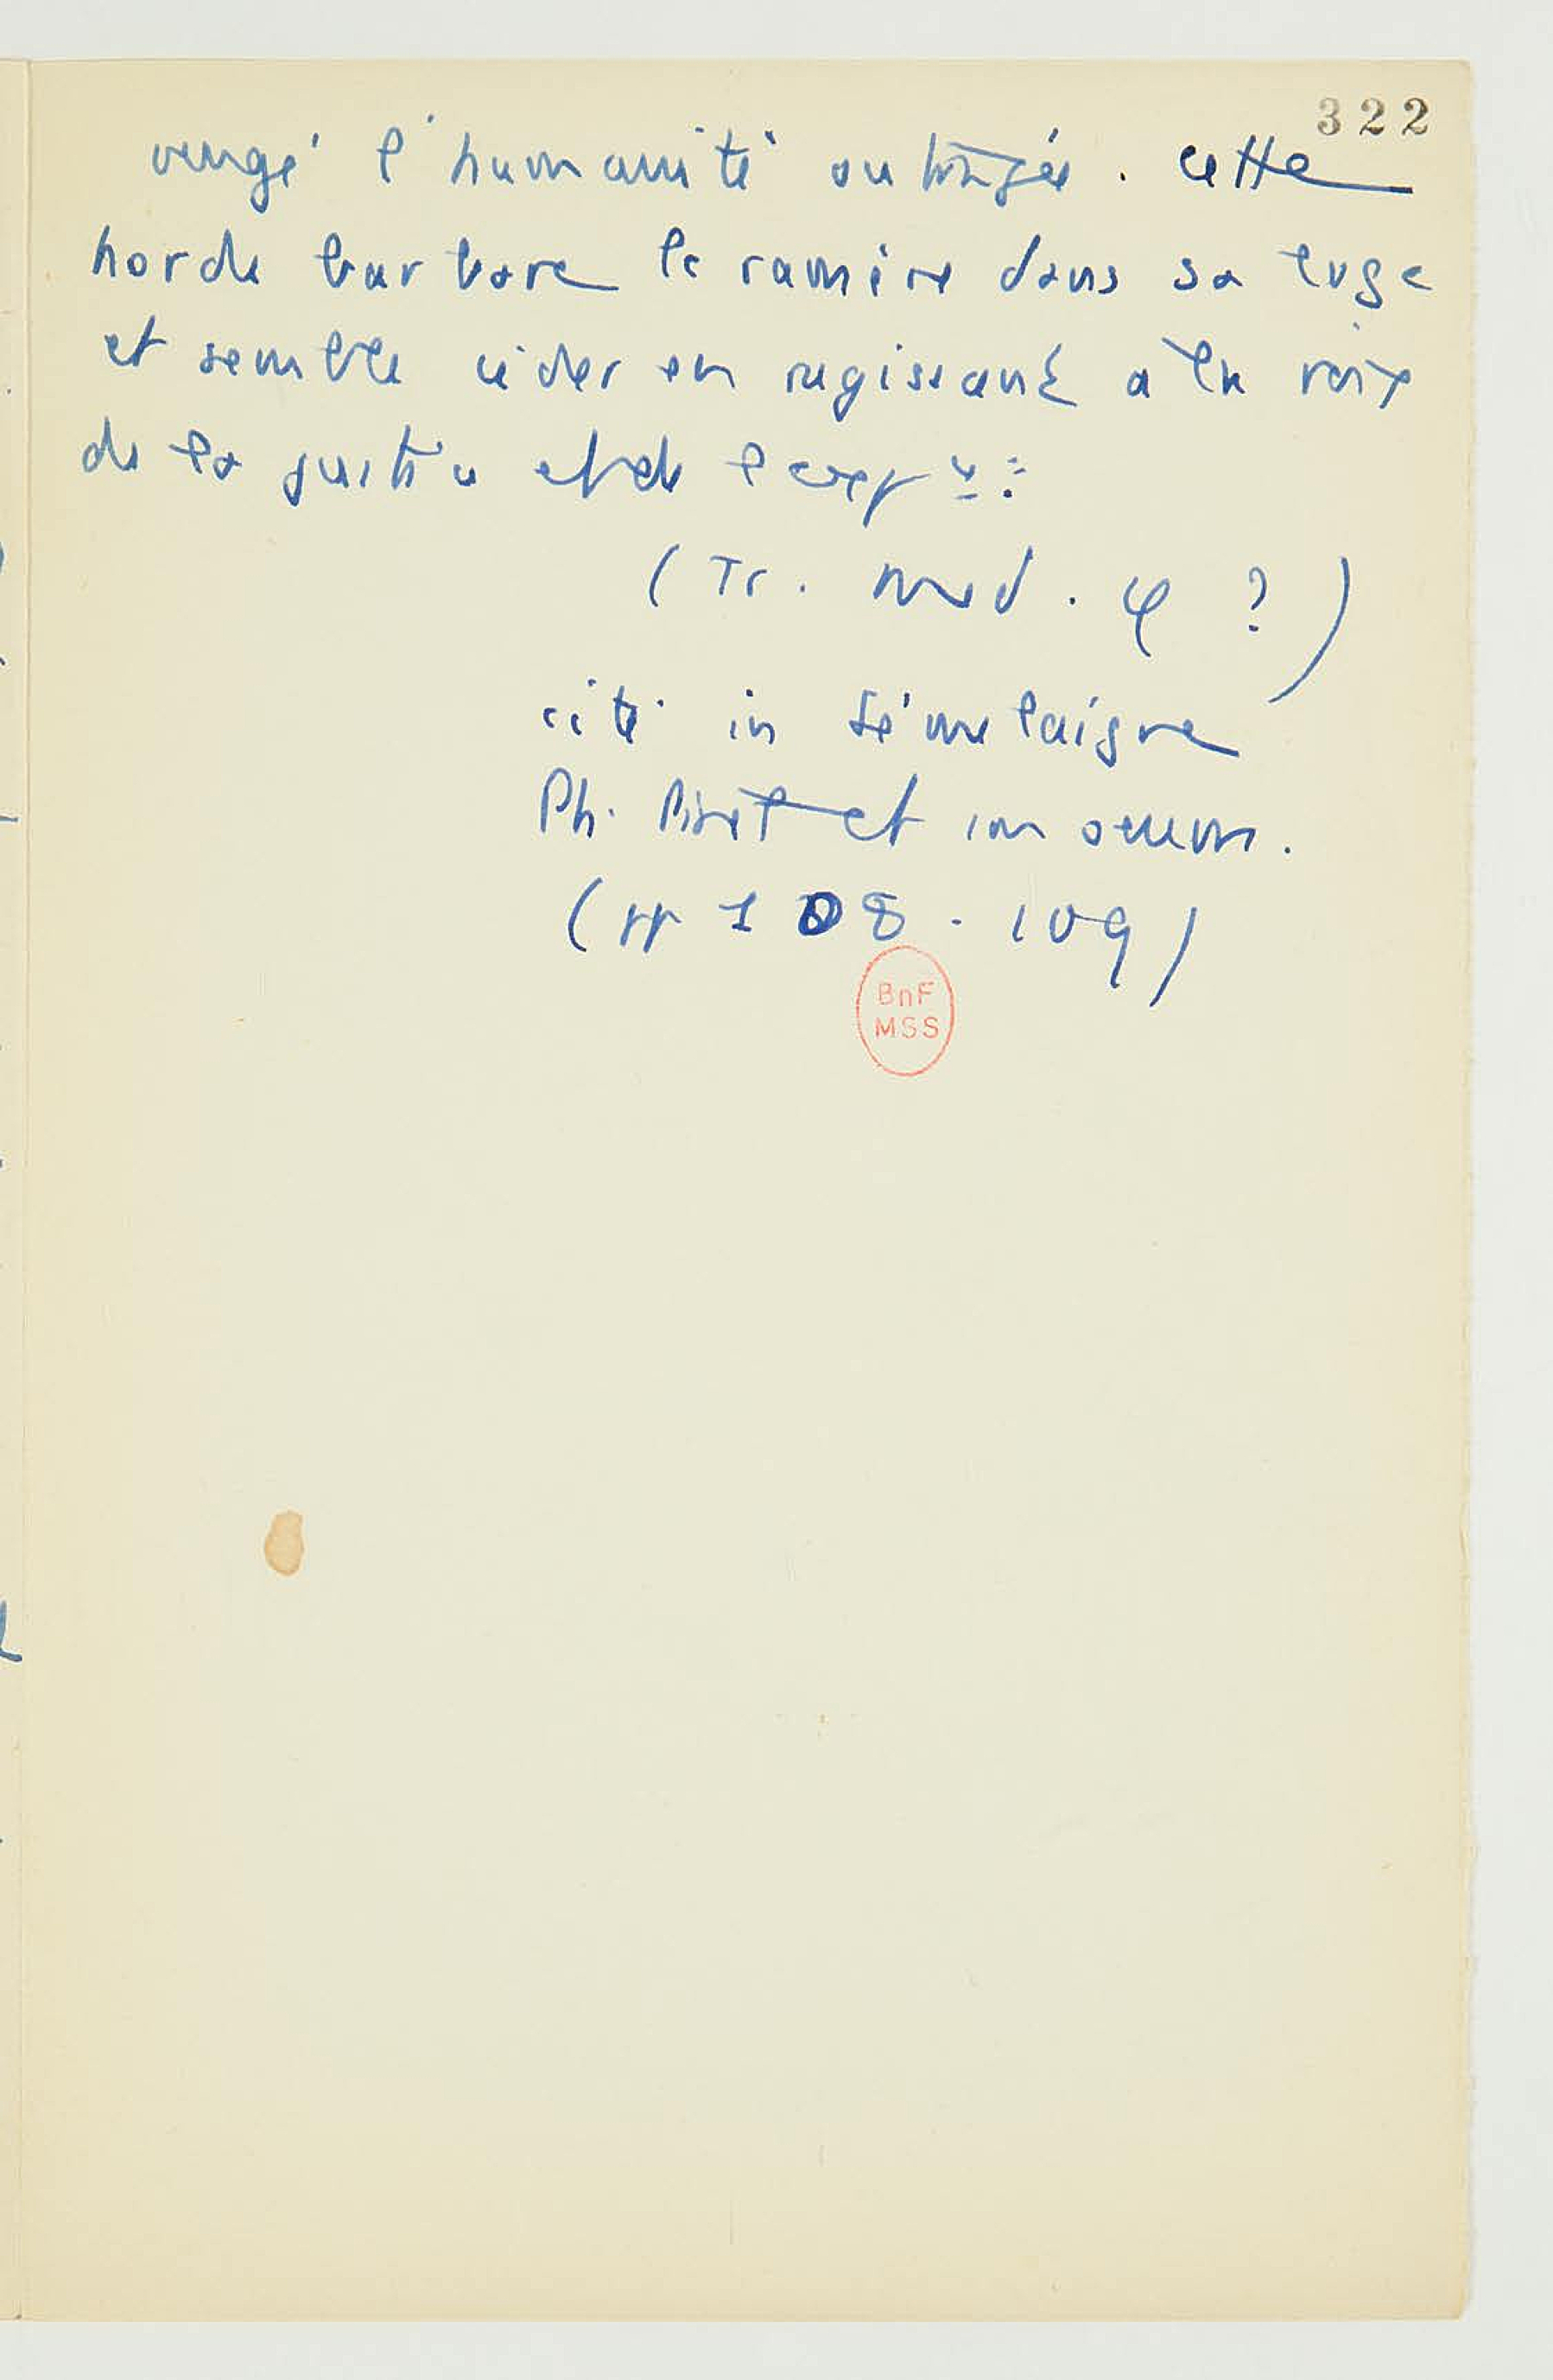 322
vengé l'humanité outragée. Cette
horde barbare le ramène dans sa loge
et semble céder en rugissant à la voix
de la justice et de
(Tr. med. φ ?)
cité in Sémelaigne
Ph. Pinel et son oeuvre.
(pp 108-109)
BnF
MSS